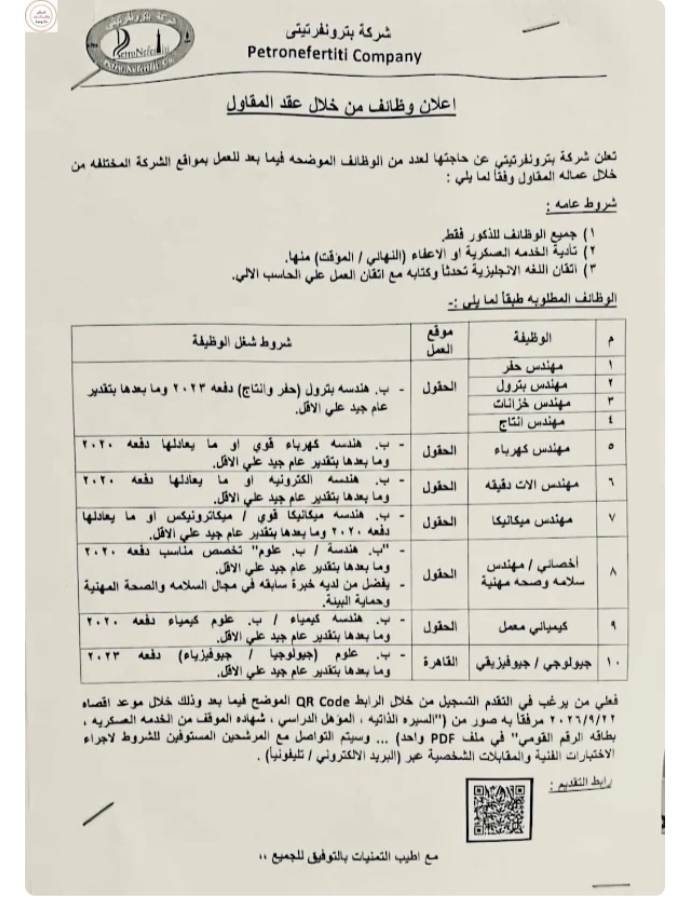 شركة بترونفرتيتى
شركة بترونفرتيتى
Petronefertiti Company
PetroNefertiti
Petro Nefertiti Co.
اعلان وظائف من خلال عقد المقاول
تعلن شركة بترونفرتيتي عن حاجتها لعدد من الوظائف الموضحه فيما بعد للعمل بمواقع الشركة المختلفه من
خلال عماله المقاول وفقاً لما يلي :
شروط عامه :
١) جميع الوظائف للذكور فقط.
٢) تأدية الخدمه العسكرية او الاعفاء (النهائي / المؤقت) منها.
٣) اتقان اللغه الانجليزية تحدثاً وكتابه مع اتقان العمل علي الحاسب الالي.
الوظائف المطلوبه طبقاً لما يلي :-
م الوظيفة موقع العمل شروط شغل الوظيفة
١ مهندس حفر
٢ مهندس بترول
٣ مهندس خزانات
٤ مهندس انتاج
الحقول
- ب. هندسه بترول (حفر وانتاج) دفعه ٢٠٢٣ وما بعدها بتقدير
عام جيد علي الاقل.
٥ مهندس كهرباء الحقول - ب. هندسه كهرباء قوي او ما يعادلها دفعه ٢٠٢٠
وما بعدها بتقدير عام جيد علي الاقل.
٦ مهندس الات دقيقه الحقول - ب. هندسه الكترونيه او ما يعادلها دفعه ٢٠٢٠
وما بعدها بتقدير عام جيد علي الاقل.
٧ مهندس ميكانيكا الحقول - ب. هندسه ميكانيكا قوي / ميكاترونيكس او ما يعادلها
دفعه ٢٠٢٠ وما بعدها بتقدير عام جيد علي الاقل.
٨ أخصائي / مهندس
سلامه وصحه مهنية
الحقول
- "ب. هندسة / ب. علوم" تخصص مناسب دفعه ٢٠٢٠
وما بعدها بتقدير عام جيد علي الاقل.
- يفضل من لديه خبرة سابقه في مجال السلامه والصحة المهنية
وحماية البيئة.
٩ كيميائي معمل الحقول - ب. هندسه كيمياء / ب. علوم كيمياء دفعه ٢٠٢٠
وما بعدها بتقدير عام جيد علي الاقل.
١٠ جيولوجي / جيوفيزيقي القاهرة - ب. علوم (جيولوجيا / جيوفيزياء) دفعه ٢٠٢٣
وما بعدها بتقدير عام جيد علي الاقل.
فعلي من يرغب في التقدم التسجيل من خلال الرابط QR Code الموضح فيما بعد وذلك خلال موعد اقصاه
٢٠٢٦/٩/٢٢ مرفقاً به صور من ("السيره الذاتيه ، المؤهل الدراسي ، شهاده الموقف من الخدمه العسكريه ،
بطاقه الرقم القومي" في ملف PDF واحد) ... وسيتم التواصل مع المرشحين المستوفين للشروط لاجراء
الاختبارات الفنية والمقابلات الشخصية عبر (البريد الالكتروني / تليفونياً) .
رابط التقديم :
مع اطيب التمنيات بالتوفيق للجميع ،،